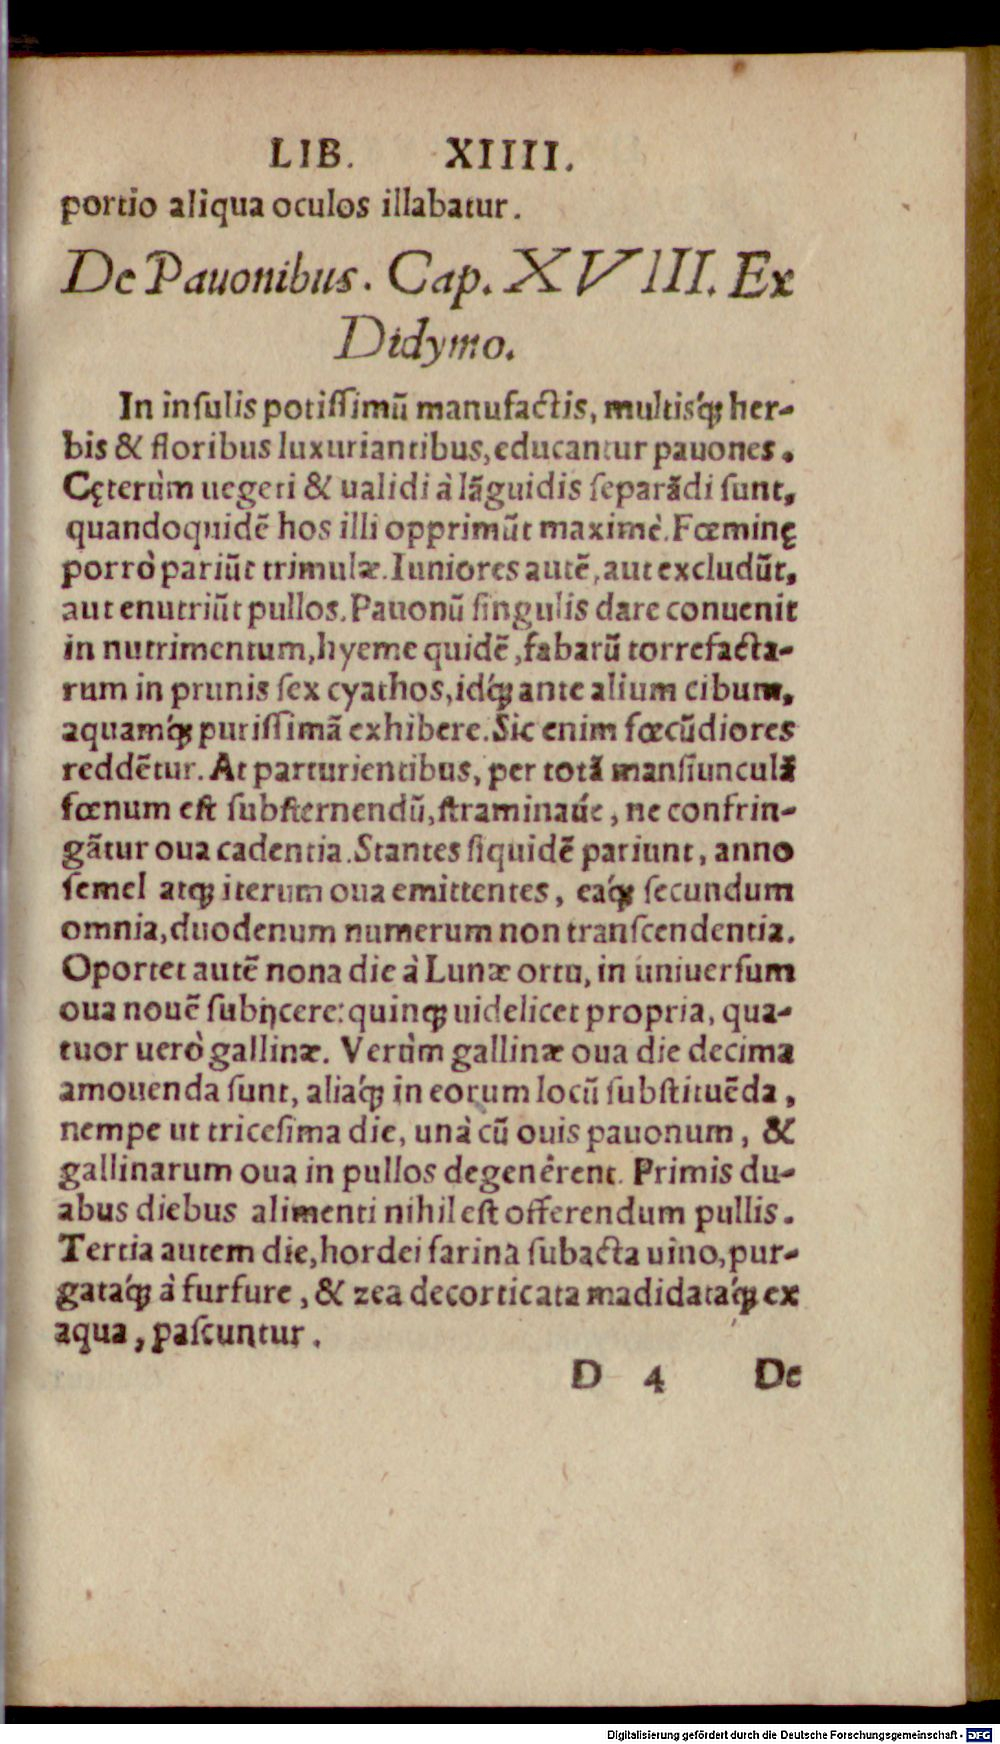 LIB. XIIII.
portio aliqua oculos illabatur.
De Pauonibus. Cap. XVIII. Ex
Didymo.
In inſulis potiſſimũ manufactis, multisq́ꝫ her-
bis & floribus luxuriantibus, educantur pauones.
Cęterùm uegeti & ualidi à lãguidis ſeparãdi ſunt,
quandoquidẽ hos illi opprimũt maximè. Fœminę
porrò pariũt trimulæ. Iuniores autẽ, aut excludũt,
aut enutriũt pullos. Pauonũ ſingulis dare conuenit
in nutrimentum, hyeme quidẽ, fabarũ torrefacta-
rum in prunis ſex cyathos, idq́ꝫ ante alium cibum,
aquamq́ꝫ puriſſimã exhibere. Sic enim fœcũdiores
reddẽtur. At parturientibus, per totã manſiunculã
fœnum eſt ſubſternendũ, ſtraminaúe, ne confrin-
gãtur oua cadentia. Stantes ſiquidẽ pariunt, anno
ſemel atqꝫ iterum oua emittentes, eaq́ꝫ ſecundum
omnia, duodenum numerum non tranſcendentia.
Oportet autẽ nona die à Lunæ ortu, in uniuerſum
oua nouẽ ſubĳcere: quinqꝫ uidelicet propria, qua-
tuor uerò gallinæ. Verùm gallinæ oua die decima
amouenda ſunt, aliaq́ꝫ in eorum locũ ſubſtituẽda,
nempe ut triceſima die, unà cũ ouis pauonum, &
gallinarum oua in pullos degenêrent. Primis du-
abus diebus alimenti nihil eſt offerendum pullis.
Tertia autem die, hordei farina ſubacta uino, pur-
gataq́ꝫ à furfure, & zea decorticata madidataq́ꝫ ex
aqua, paſcuntur.
D 4 De
Digitalisierung gefördert durch die Deutsche Forschungsgemeinschaft - DFG